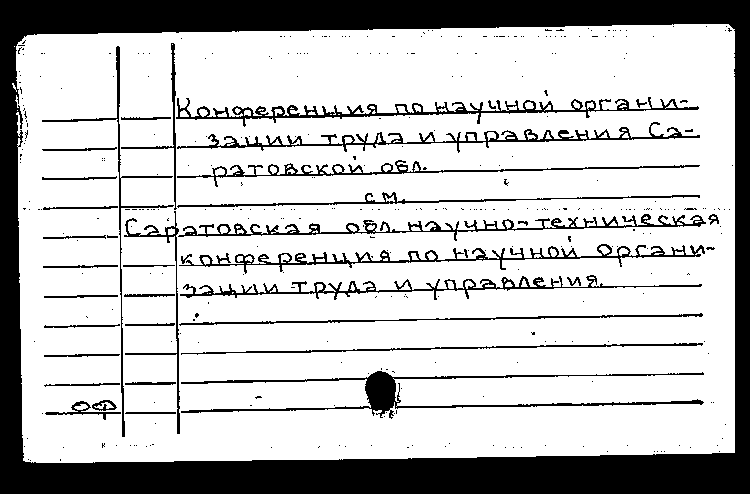 Конференция по научной органи-
зации труда и управления Са-
ратовской обл.
см.
Саратовская обл. научно-техническая
конференция по научной органи-
зации труда и управления.
ОФ